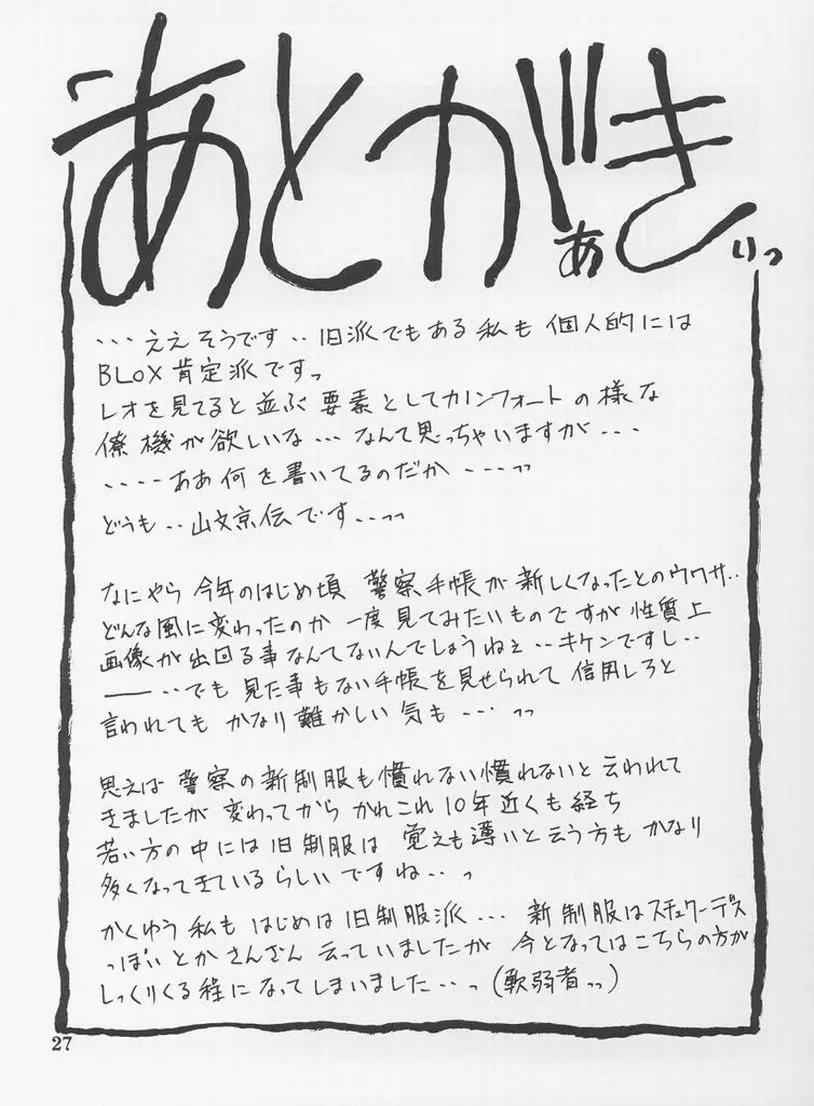 あとがき
あぁ
いっ
・・・ええそうです・・旧派でもある私も個人的には
BLOX肯定派ですっ
レオを見てると並ぶ要素としてカノンフォートの様な
僚機が欲しいな・・・なんて思っちゃいますが・・・
・・・・ああ何を書いてるのだか・・・っっ
どうも・・山文京伝です・・っっ
なにやら今年のはじめ頃 警察手帳が新しくなったとのウワサ・・
どんな風に変わったのか一度見てみたいものですが性質上
画像が出回る事なんてないんでしょうねぇ・・キケンですし・・
――・・でも見た事もない手帳を見せられて信用しろと
言われてもかなり難かしい気も・・・っっ
思えば警察の新制服も慣れない慣れないと云われて
きましたが変わってからかれこれ10年近くも経ち
若い方の中には旧制服は覚えも薄いと云う方もかなり
多くなってきているらしいですね・・っ
かくゆう私もはじめは旧制服派・・・新制服はスチュワーデス
っぽいとかさんざん云っていましたが今となってはこちらの方が
しっくりくる程になってしまいました・・っ(軟弱者っっ)
27